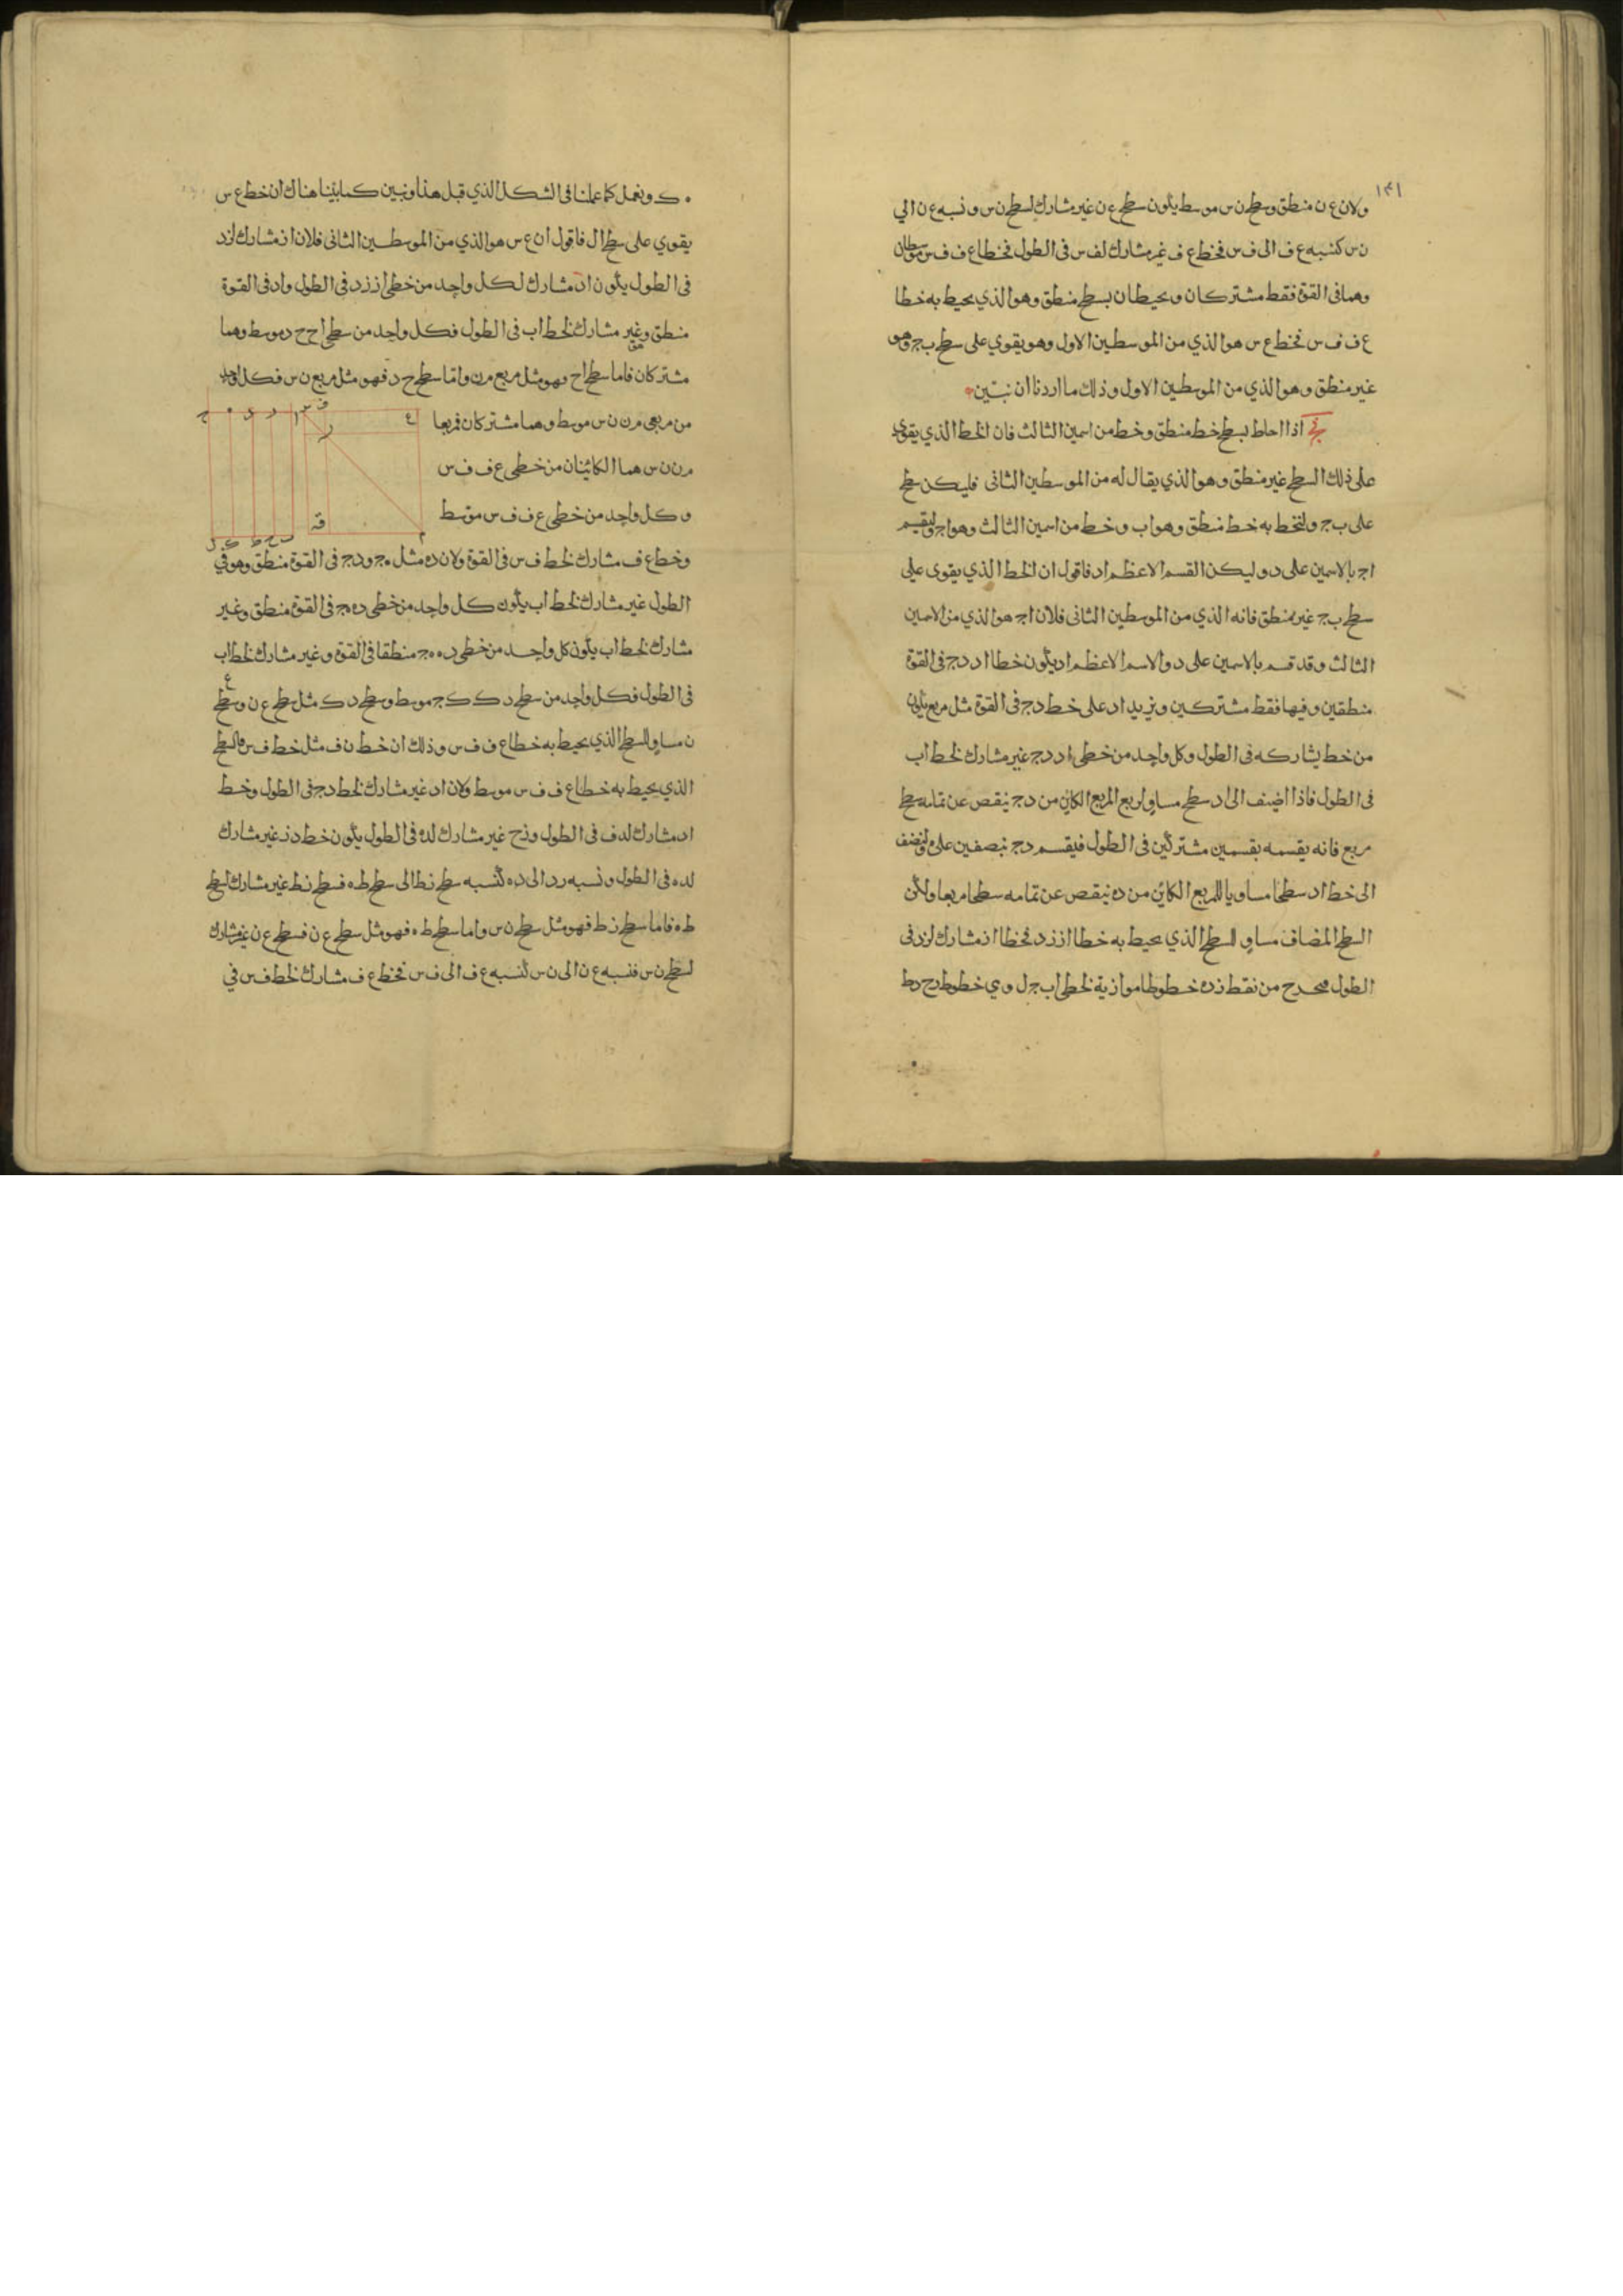 ١٤١
ولان ع ن منطق وسطح ن س موسط يكون سطح ع ن غير مشارك لسطح ن س ونسبه ع ن الي
ن س كنسبه ع ف الى ف س فخط ع ف غير مشارك لف س فى الطول فخطا ع ف ف س موسطان
وهما فى القوة فقط مشتركان ويحيطان بسطح منطق وهو الذي يحيط به خطا
ع ف ف س فخط ع س هو الذي من الموسطين الاول وهو يقوي على سطح ب ج وهو
غير منطق وهو الذي من الموسطين الاول وذلك ما اردنا ان نبين
اذا احاط بسطح خط منطق وخط من اسمين الثالث فان الخط الذي يقوى
على ذلك السطح غير منطق وهو الذي يقال له من الموسطين الثانى فليكن سطح
على ب ج ولنخط به خط منطق وهو اب وخط من اسمين الثالث وهو اج وليقسم
اج بالاسمين على د وليكن القسم الاعظم اد فاقول ان الخط الذي يقوى على
سطح ب ج غير منطق فانه الذي من الموسطين الثانى فلان اج هو الذي من الاسمين
الثالث وقد قسم بالاسمين على د والاسم الاعظم اد يكون خطا اد دج فى القوة
منطقين وفيها فقط مشتركين ويزيد اد على خط دج فى القوة مثل مربع يكون
من خط يشاركه فى الطول وكل واحد من خطى اد دج غير مشارك لخط اب
فى الطول فاذا اضيف الى اد سطح مساو لربع المربع الكاين من دج ينقص عن تمامه سطح
مربع فانه يقسمه بقسمين مشتركين فى الطول فيقسم دج بنصفين على ه ولنضف
الى خط اد سطحا مساويا للمربع الكاين من ده ينقص عن تمامه سطحا مربعا ولكن
السطح المضاف مساو للسطح الذي يحيط به خطا از زد فخطا از مشارك لزد فى
الطول من نقط زده خطوطا موازية لخطى اب ج ل وي خطوط زح دط
ه ك ونعمل كما عملنا فى الشكل الذي قبل هذا ونبين كما بينا هناك ان خط ع س
يقوي على سطح ال فاقول ان ع س هو الذي من الموسطين الثانى فلان از مشارك لزد
فى الطول يكون اد مشارك لكل واحد من خطى از زد فى الطول واد فى القوة
منطق وغير مشارك لخط اب فى الطول فكل واحد من سطحى اح ح د موسط وهما
مشتركان فاما سطح اح فهو مثل مربع م ن واما سطح ح د فهو مثل مربع ن س فكل واحد
من مربعى م ن ن س موسط وهما مشتركان فمربعا
م ن ن س هما الكائنان من خطى ع ف ف س
وكل واحد من خطى ع ف ف س موسط
وخط ع ف مشارك لخط ف س فى القوة ولان ده مثل ه ج ودج فى القوة منطق وهو في
الطول غير مشارك لخط اب يكون كل واحد من خطى ده ه ج فى القوة منطق وغير
مشارك لخط اب يكون كل واحد من خطى ده ه ج منطقا فى القوة وغير مشارك لخط اب
فى الطول فكل واحد من سطح د ك ك ج موسط وسطح د ك مثل سطح ع ن وسطح
ن مساو للسطح الذي يحيط به خطا ع ف ف س وذلك ان خط ن ف مثل خط ف س فالسطح
الذي يحيط به خطا ع ف ف س موسط ولان اد غير مشارك لخط دج فى الطول وخط
اد مشارك لد ف فى الطول وزح غير مشارك لده فى الطول يكون خط دز غير مشارك
لده فى الطول ونسبه زد الى ده كنسبه سطح زط الى سطح طه فسطح زط غير مشارك لسطح
طه فاما سطح زط فهو مثل سطح ن س واما سطح طه فهو مثل سطح ع ن فسطح ع ن غير مشارك
لسطح ن س فنسبه ع ن الى ن س كنسبه ع ف الى ف س فخط ع ف مشارك لخط ف س في